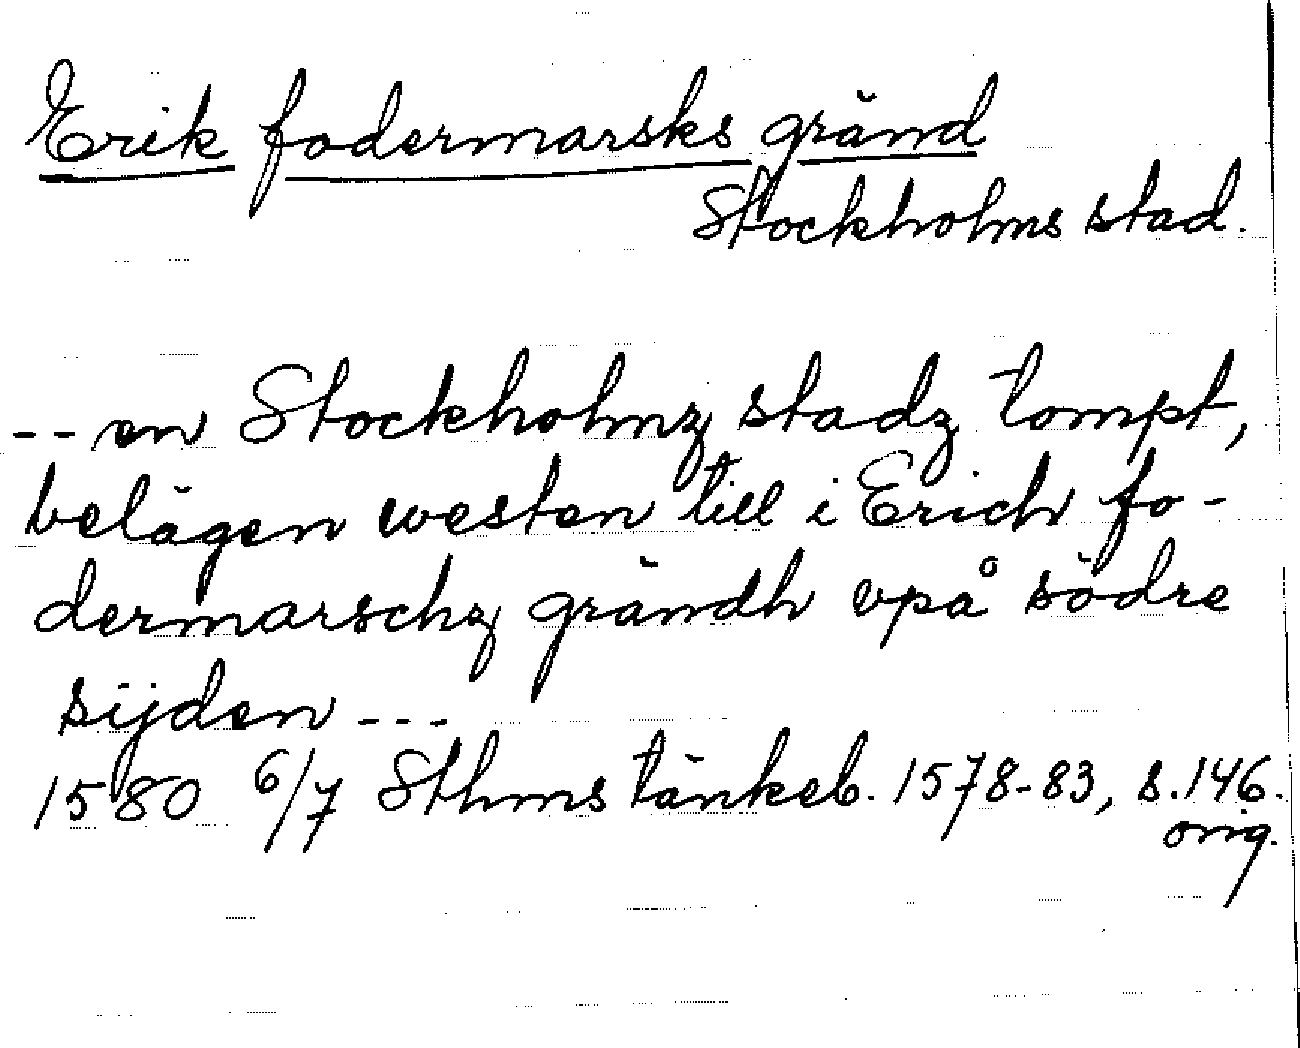 Erik fodermarsks gränd
Stockholms stad.
-- en Stockholmz stadz tompt,
belägen westen till i Erich fo-
dermarschz grändh vpå södre
sijden ---
1580 6/7 Sthms tänkeb. 1578-83, s. 146.
orig.